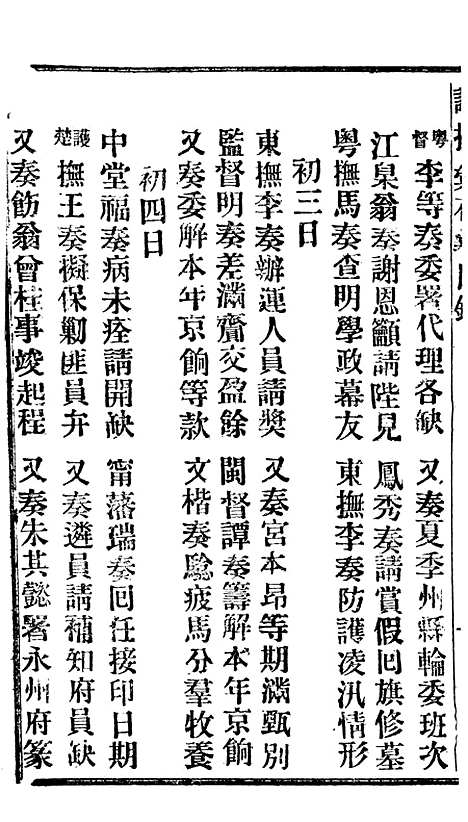 粵督李等奏委署代理各缺　又奏夏季州縣輪委班次
江臬翁奏謝恩籲請陛見　鳳秀奏請賞假回旗修墓
粵撫馬奏查明學政幕友　東撫李奏防護凌汛情形
初三日
東撫李奏辦運人員請獎　又奏宮本昂等期滿甄別
監督明奏差滿齎交盈餘　閩督譚奏籌解本年京餉
又奏委解本年京餉等款　文楷奏騐疲馬分羣牧養
初四日
中堂福奏病未痊請開缺　甯藩瑞奏回任接印日期
護楚撫王奏擬保剿匪員弁　又奏遴員請補知府員缺
又奏飭翁曾桂事竣起程　又奏朱其懿署永州府篆